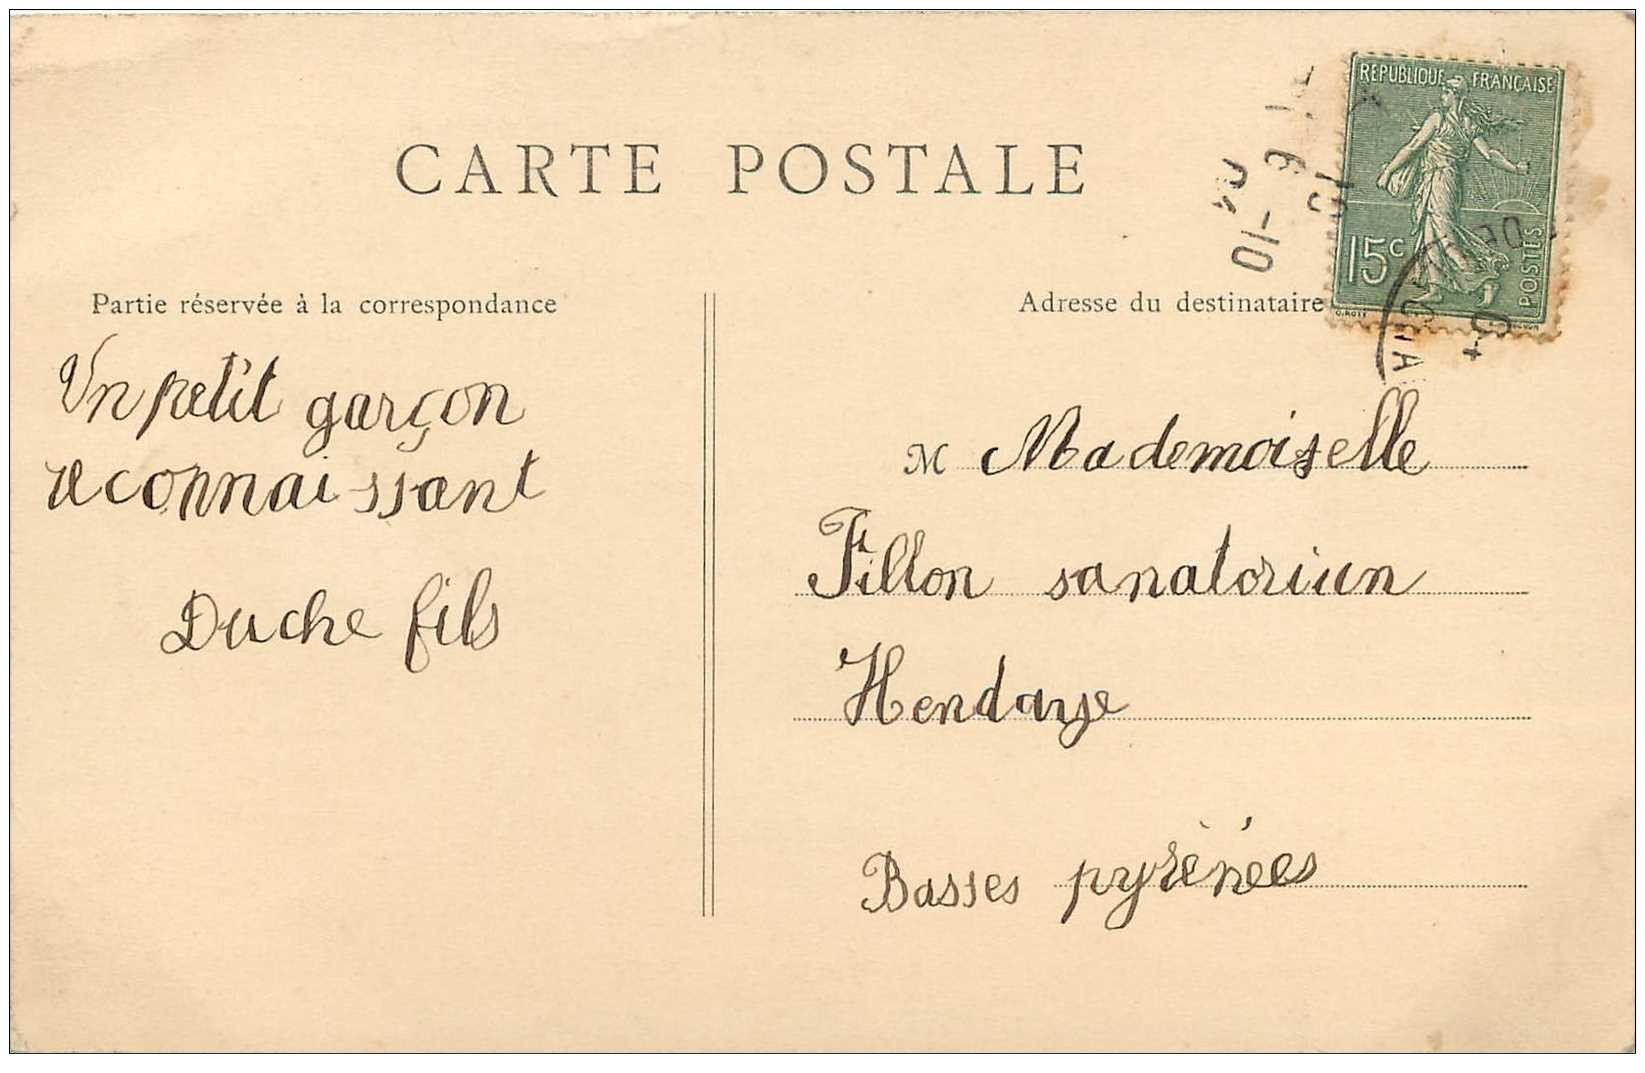 CARTE POSTALE
RÉPUBLIQUE FRANÇAISE
15c
POSTES
O. ROTY
Partie réservée à la correspondance
Adresse du destinataire
Un petit garçon
reconnaissant
Duche fils
M Mademoiselle
Fillon sanatoriun
Hendaye
Basses pyrénées